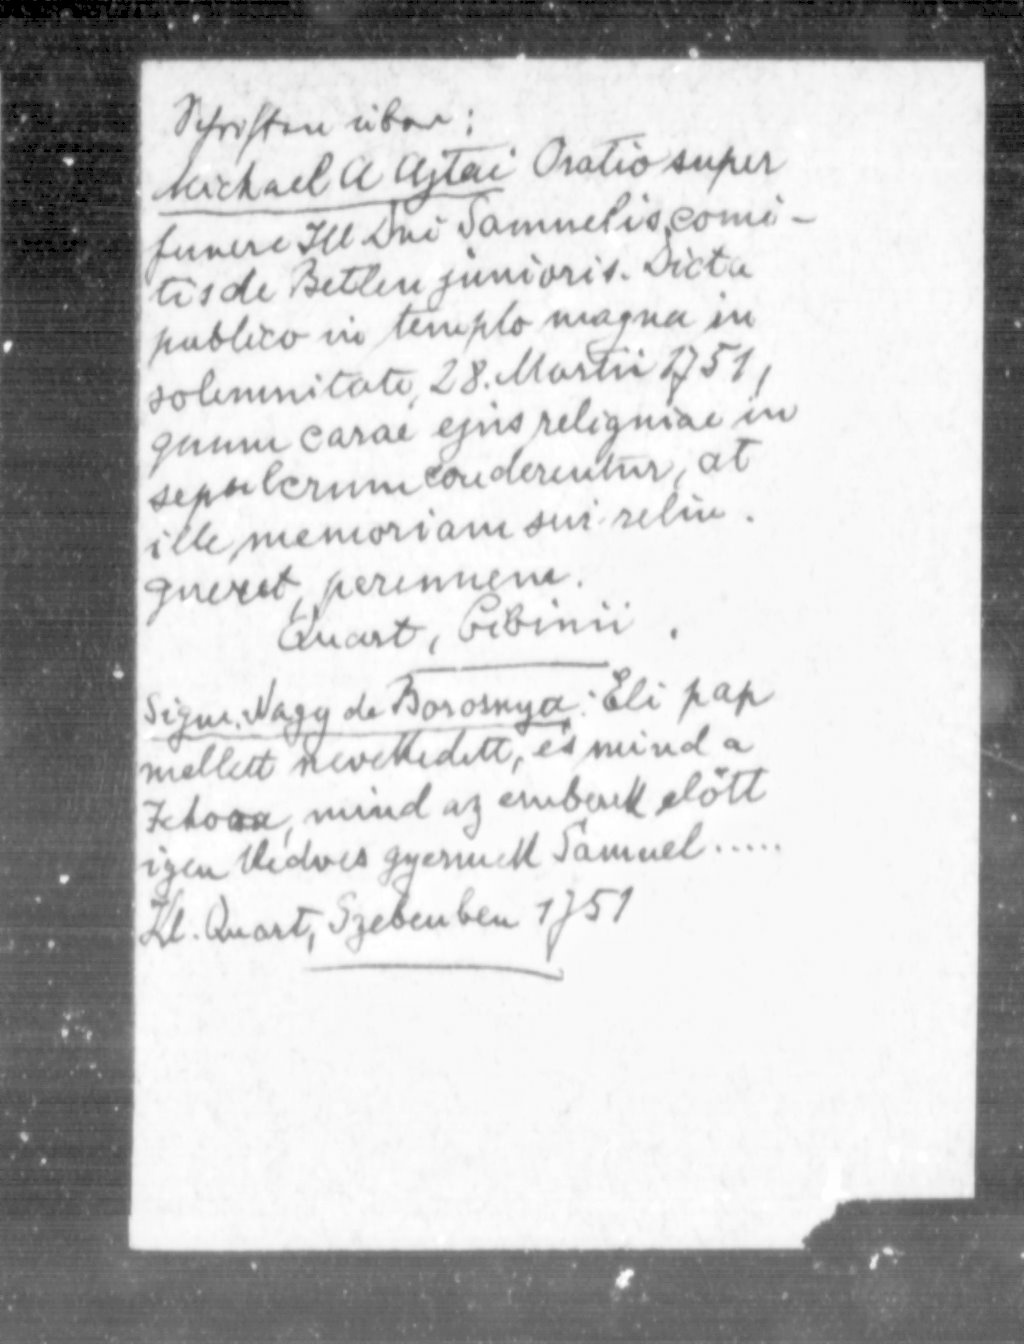 Schriften über:
Michael A Ajtai Oratio super
funere Ill Dni Samuelis, comi-
tis de Betlen junioris. Dicta
publico in templo magna in
solemnitate, 28. Martii 1751,
quum carae ejus reliquiae in
sepulcrum conderentur, at
ille memoriam sui relin.
queret, perennem.
Quart, Cibinii.
Sigm. Nagy de Borosnya: Éli pap
mellett nevekedett, és mind a
mind az emberek előtt
igen kedves gyermek Samuel.....
Kl. Quart, Szebenben 1751